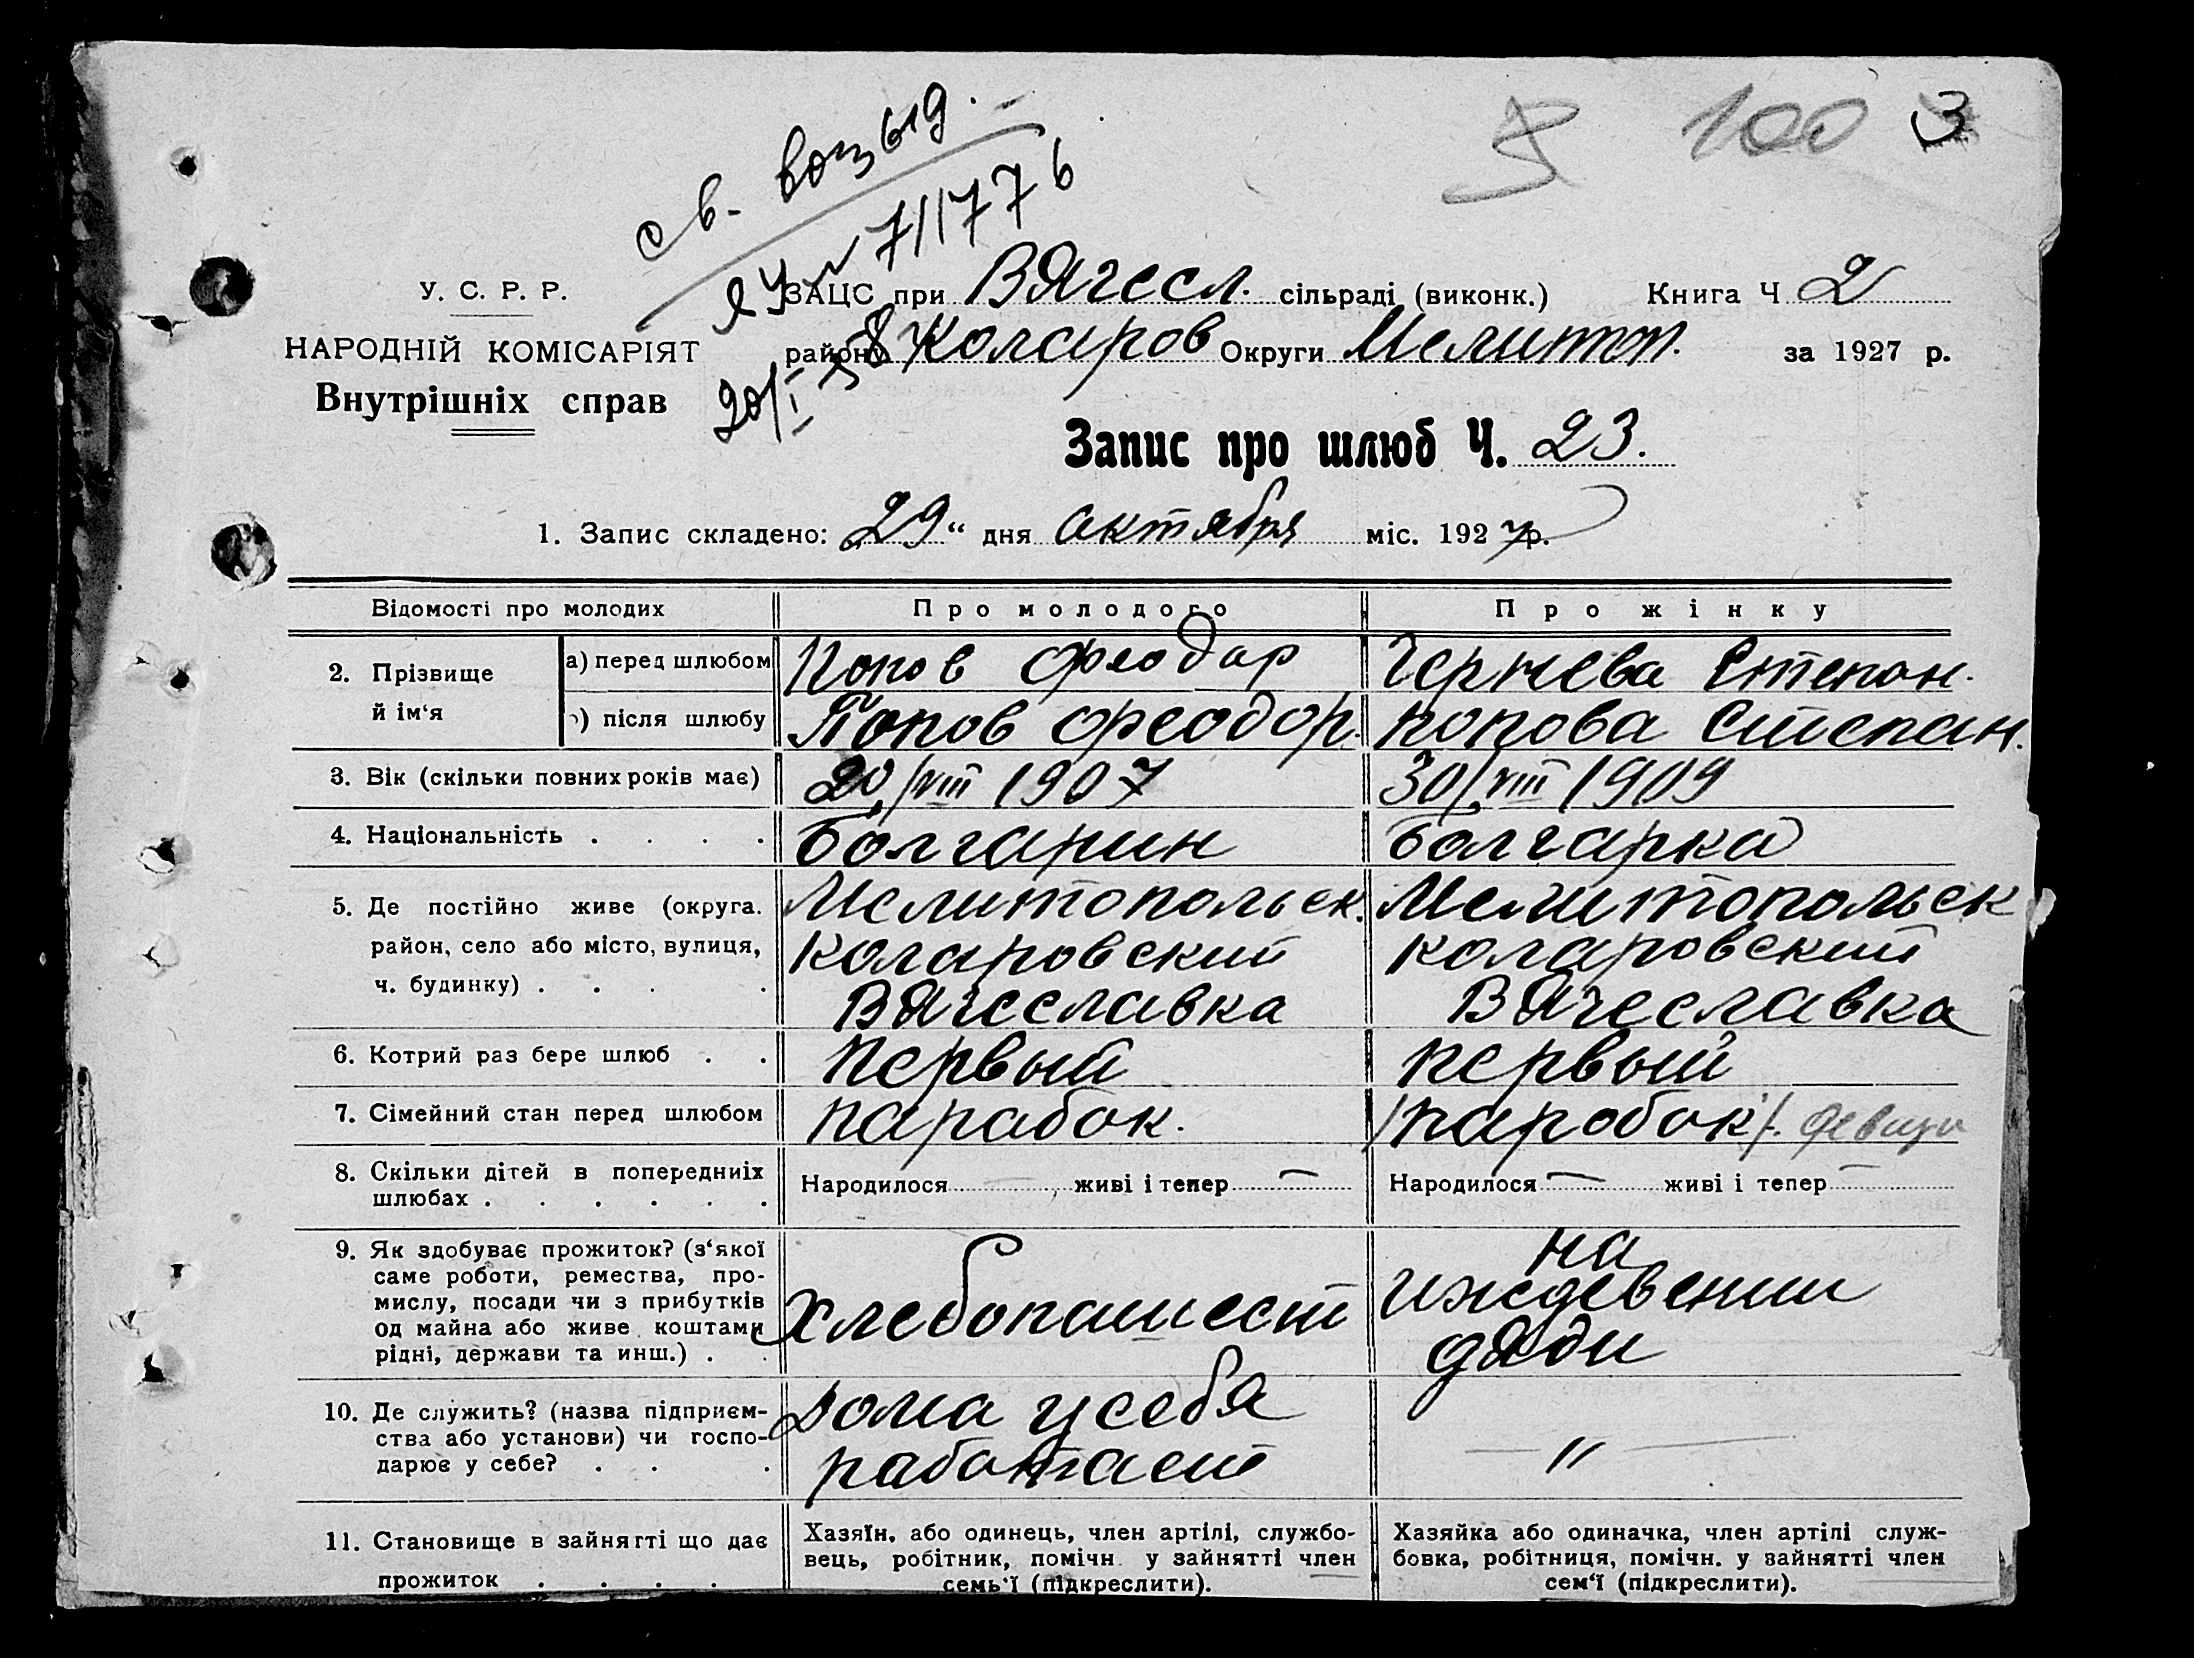 5 100 3
св. вощыд.
ЯУ № 711776
20/I 58
У. С. Р. Р.
НАРОДНІЙ КОМІСАРІЯТ
Внутрішніх справ
ЗАЦС при Вячесл. сільраді (виконк.) Книга Ч 2
району Коларов Округи Мелитоп. за 1927 р.
Запис про шлюб Ч. 23.
1. Запис складено: „29“ дня октября міс. 1927 р.
Відомості про молодих Про молодого Про жінку
2. Прізвище й ім‘я
а) перед шлюбом Попов Феодор Чернева Степан.
б) після шлюбу Попов Феодор. Попова Степан.
3. Вік (скільки повних років має) 20/VIII 1907 30/VIII 1909
4. Національність . . . . Болгарин Болгарка
5. Де постійно живе (округа. Мелитопольск. Мелитопольск
район, село або місто, вулиця, Коларовский Коларовский
ч. будинку) . . . . Вячеславка Вячеславка
6. Котрий раз бере шлюб . . Первый Первый
7. Сімейний стан перед шлюбом парабок. /паробок/. девица
8. Скільки дітей в попередниіх
шлюбах . . . . . . Народилося — живі і тепер — Народилося — живі і тепер —
9. Як здобуває прожиток? (з‘якої
саме роботи, ремества, про-
мислу, посади чи з прибутків
од майна або живе коштами
рідні, держави та инш.) . .
Хлебопашест
на
иждевении
дяди
10. Де служить? (назва підприєм-
ства або установи) чи госпо-
дарює у себе? . . .
Дома у себя
работает
— „ —
11. Становище в зайнятті що дає
прожиток . . . .
Хазяїн, або одинець, член артілі, службо-
вець, робітник, помічн. у зайнятті член
семь‘ї (підкреслити).
Хазяйка або одиначка, член артілі служ-
бовка, робітниця, помічн. у зайнятті член
сем‘ї (підкреслити).